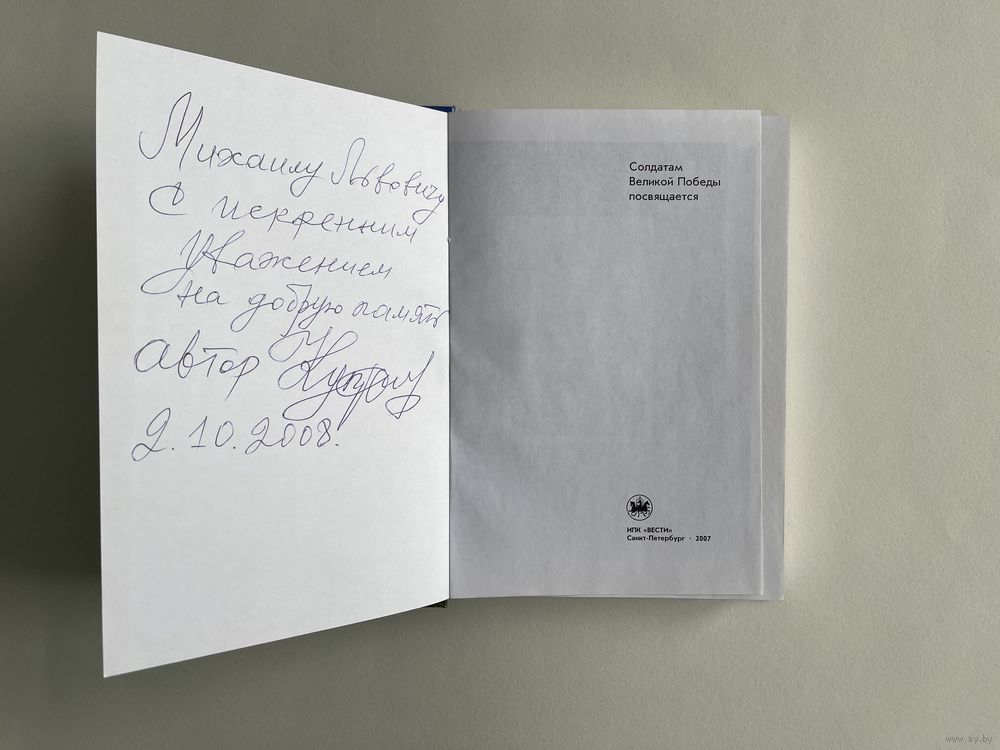 Михаилу Львовичу
С искренним
уважением
на добрую память
автор
2.10.2008.
Солдатам
Великой Победы
посвящается
ИПК «ВЕСТИ»
Санкт-Петербург · 2007
www.ay.by